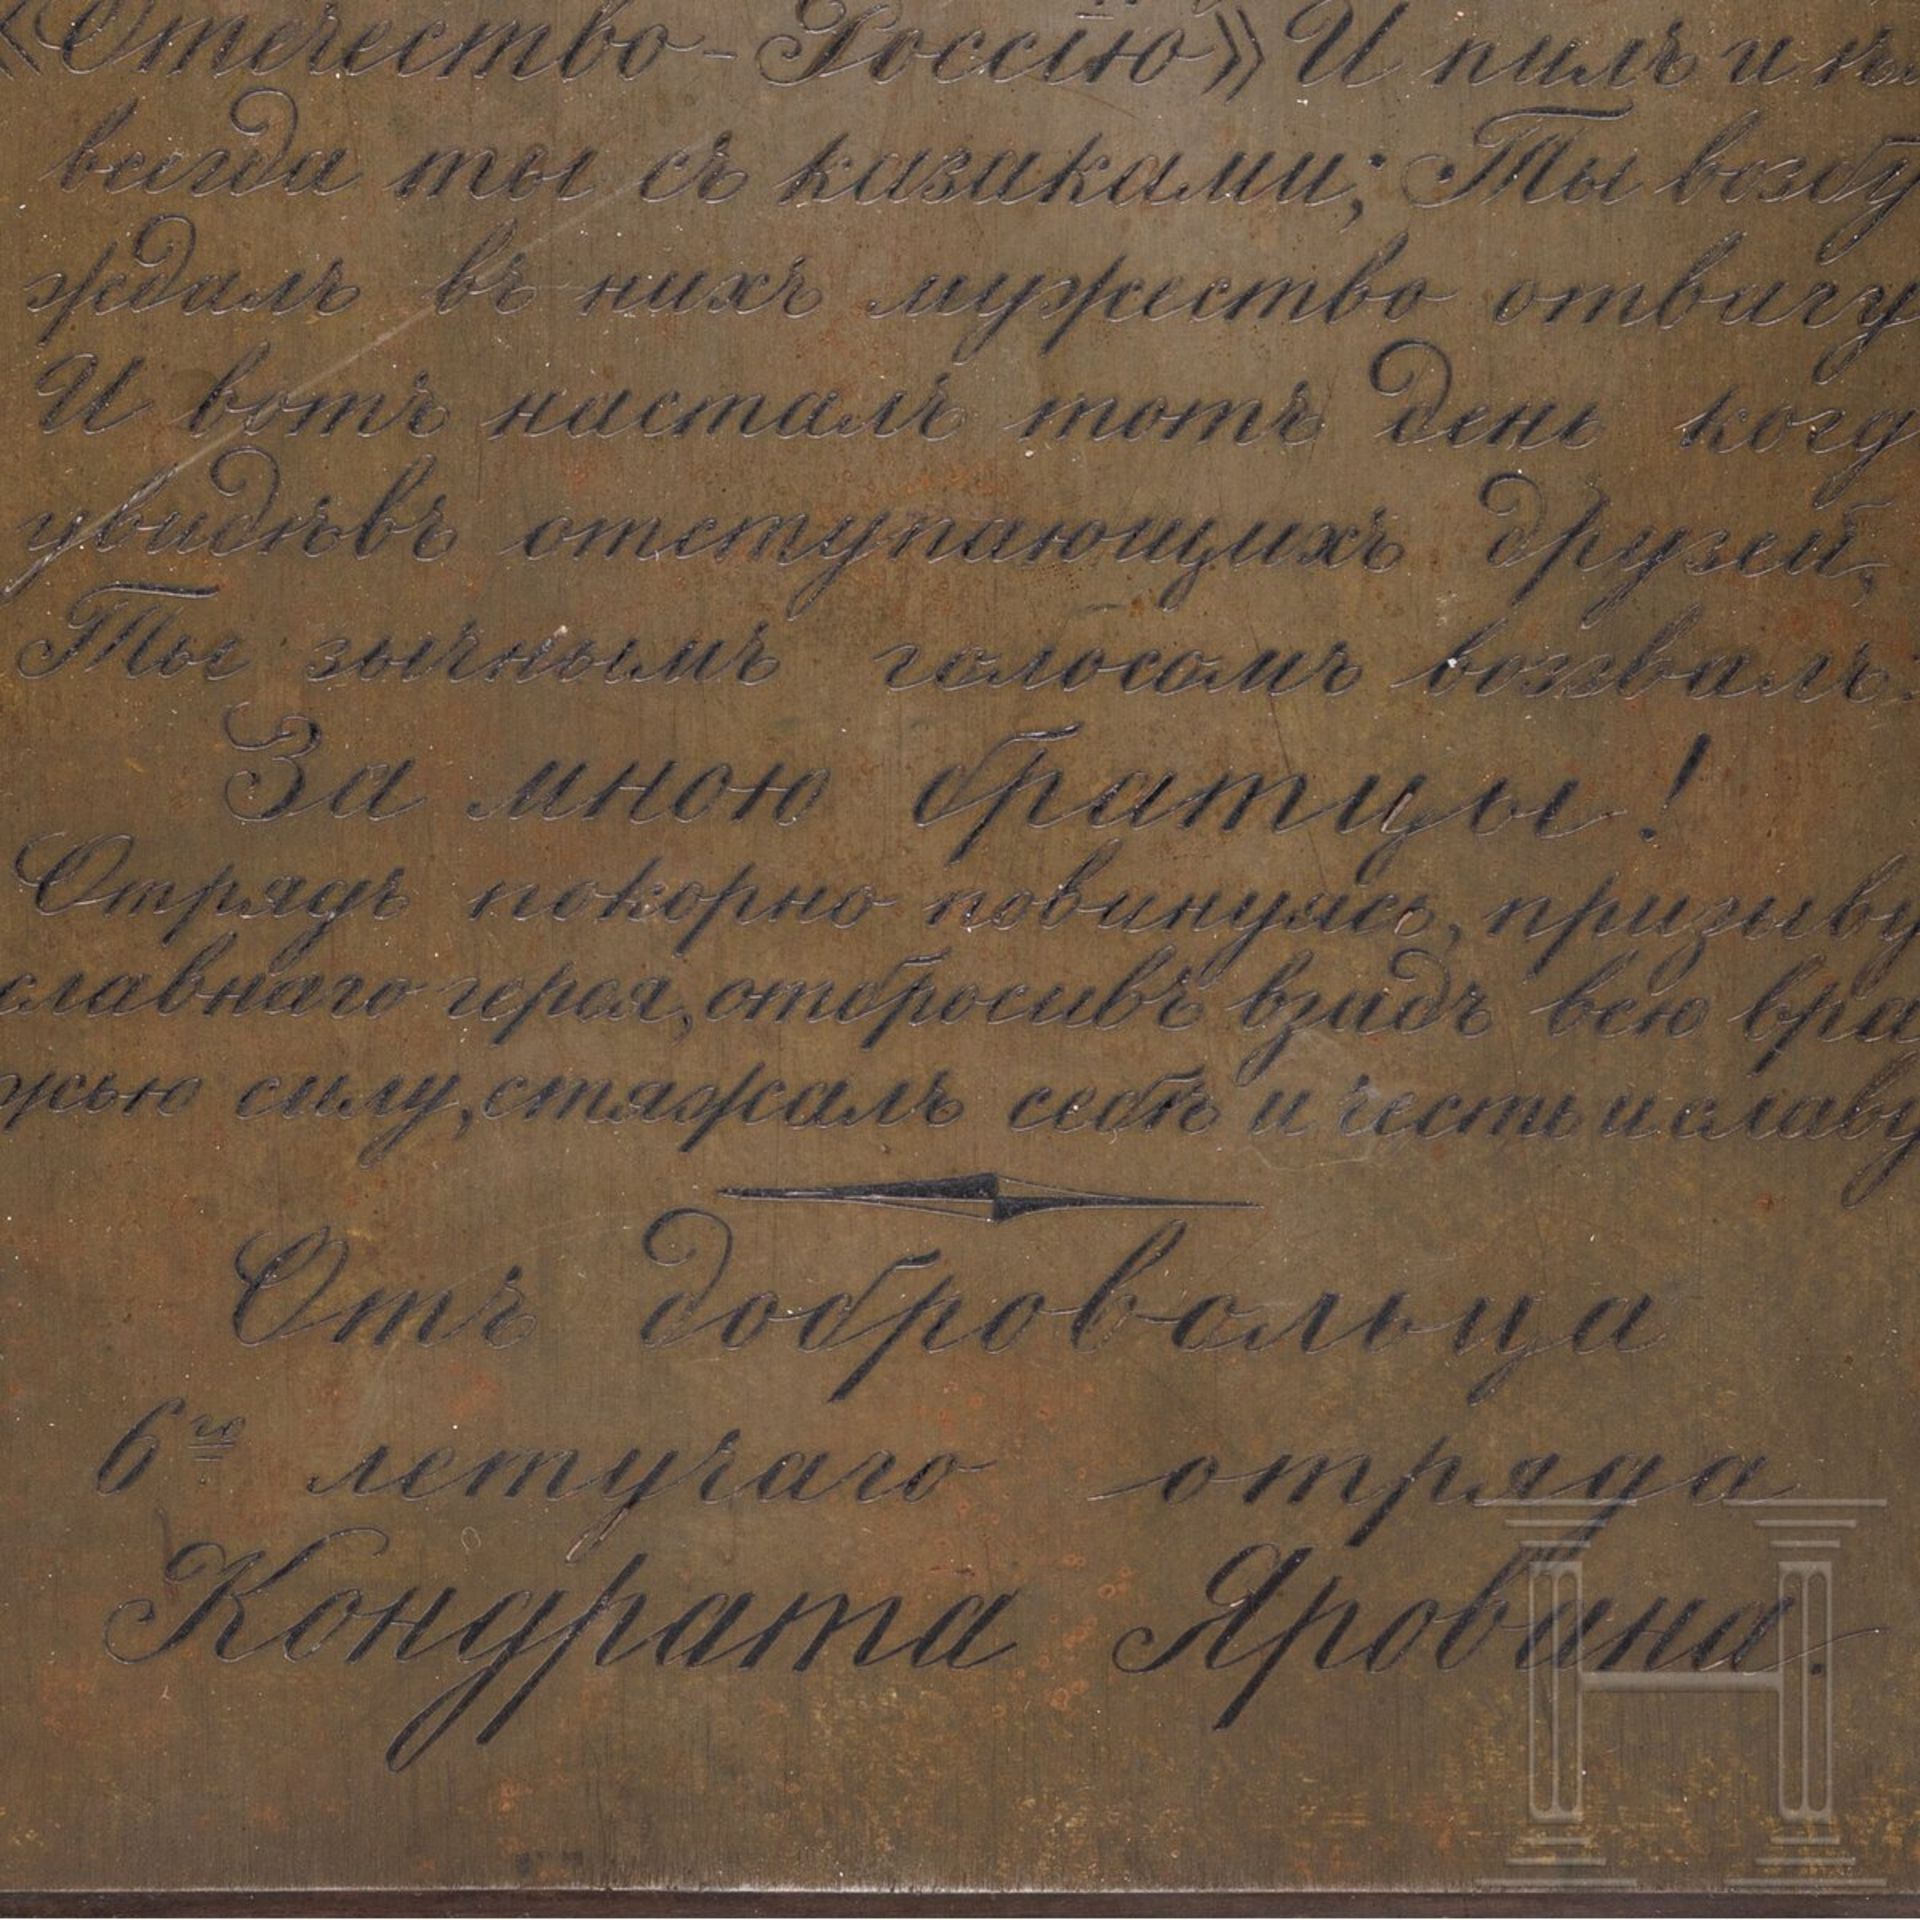 «Отечество-Россію» И пилъ и
всегда ты съ казаками; Ты возбу
ждалъ въ нихъ мужество отвагу
И вотъ насталъ тотъ день когд
увидѣвъ отступающихъ друзей,
Ты зычнымъ голосомъ воззвалъ:
За мною братцы!
Отрядъ покорно повинуясь, призыву
славнаго героя, отбросивъ взадъ всю вра
жью силу, стяжалъ себѣ и честь и славу
Отъ добровольца
6го летучаго отряда
Кондрата Яровина.
H